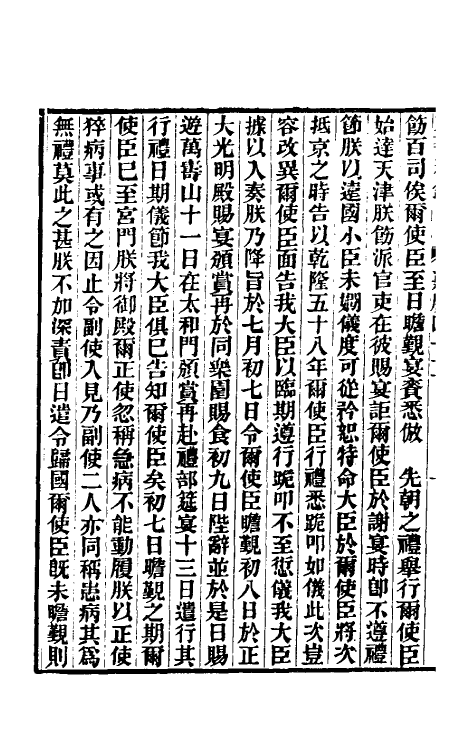 飭百司俟爾使臣至日瞻覲宴賚悉倣　先朝之禮舉行爾使臣
始達天津朕飭派官吏在彼賜宴詎爾使臣於謝宴時卽不遵禮
節朕以遠國小臣未嫺儀度可從矜恕特命大臣於爾使臣將次
抵京之時告以乾隆五十八年爾使臣行禮悉跪叩如儀此次豈
容改異爾使臣面告我大臣以臨期遵行跪叩不至愆儀我大臣
據以入奏朕乃降旨於七月初七日令爾使臣瞻覲初八日於正
大光明殿賜宴頒賞再於同樂園賜食初九日陛辭並於是日賜
遊萬壽山十一日在太和門頒賞再赴禮部筵宴十三日遣行其
行禮日期儀節我大臣俱已告知爾使臣矣初七日瞻覲之期爾
使臣已至宮門朕將御殿爾正使忽稱急病不能動履朕以正使
猝病事或有之因止令副使入見乃副使二人亦同稱患病其爲
無禮莫此之甚朕不加深責卽日遣令歸國爾使臣旣未瞻覲則